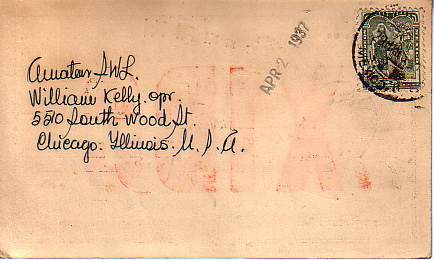 APR 2 1937
Amateur
William Kelly. opr.
5510 South Wood St.
Chicago. Illinois. U. S. A.